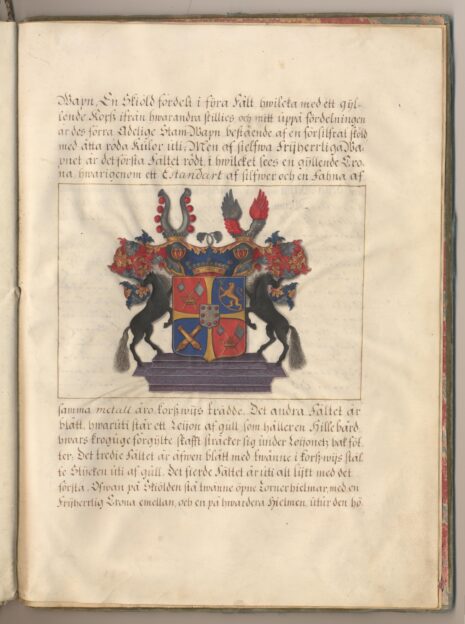 Wapn, En Skiöld fördelt i fÿra Fält, hwilcka med ett gÿl-
lende Korß ifrån hwarandra skillies och mitt uppå fördelningen
är des förra Adelige Stam-Wapn, bestående af en förSilfrat skiöld
med åtta röda Kulor uti, Men af sielfwa Frÿherrliga Wa-
pnet är det första Fältet rödt, i hwilcket sees en gÿllende Cro-
na, hwarigenom ett Estandart af silfwer och en Fahna af
samma metall äro korßwijs krådde. Det andra Fältet är
blått, hwaruti står ett Leijon af gull som håller en Hillebård,
hwars krokige förgÿlte skafft sträcker sig under Leijonetz bak föt-
ter. Det tredie Fältet är äfwen blått med twänne i korßwijs stäl-
te Stÿcken uti af gull. Det fierde Fältet är uti all lijkt med det
första. Ofwan på Skiölden stå twänne öpne Tornerhielmar, med en
Frÿherrlig Crona emellan, och en på hwardera Hielmen, utur den hö-